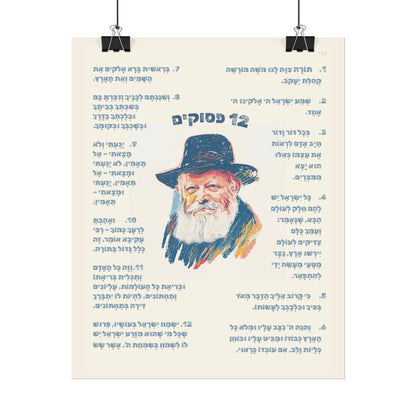 12 פסוקים
1. תּוֹרָה צִוָּה לָנוּ מֹשֶׁה מוֹרָשָׁה
קְהִלַּת יַעֲקֹב.
2. שְׁמַע יִשְׂרָאֵל ה' אֱלֹקֵינוּ ה'
אֶחָד.
3. בְּכָל דּוֹר וָדוֹר
חַיָּב אָדָם לִרְאוֹת
אֶת עַצְמוֹ כְּאִלּוּ
הוּא יָצָא
מִמִּצְרָיִם.
4. כָּל יִשְׂרָאֵל יֵשׁ
לָהֶם חֵלֶק לְעוֹלָם
הַבָּא, שֶׁנֶּאֱמַר:
וְעַמֵּךְ כֻּלָּם
צַדִּיקִים לְעוֹלָם
יִירְשׁוּ אָרֶץ, נֵצֶר
מַטָּעַי מַעֲשֵׂה יָדַי
לְהִתְפָּאֵר.
5. כִּי קָרוֹב אֵלֶיךָ הַדָּבָר מְאֹד
בְּפִיךָ וּבִלְבָבְךָ לַעֲשׂוֹתוֹ.
6. וְהִנֵּה ה' נִצָּב עָלָיו וּמְלֹא כָל
הָאָרֶץ כְּבוֹדוֹ וּמַבִּיט עָלָיו וּבוֹחֵן
כְּלָיוֹת וָלֵב, אִם עוֹבְדוֹ כָּרָאוּי.
7. בְּרֵאשִׁית בָּרָא אֱלֹקִים אֵת
הַשָּׁמַיִם וְאֵת הָאָרֶץ.
8. וְשִׁנַּנְתָּם לְבָנֶיךָ וְדִבַּרְתָּ בָּם
בְּשִׁבְתְּךָ בְּבֵיתֶךָ
וּבְלֶכְתְּךָ בַדֶּרֶךְ
וּבְשָׁכְבְּךָ וּבְקוּמֶךָ.
9. יָגַעְתִּי וְלֹא
מָצָאתִי - אַל
תַּאֲמִין, לֹא יָגַעְתִּי
וּמָצָאתִי - אַל
תַּאֲמִין, יָגַעְתִּי
וּמָצָאתִי -
תַּאֲמִין.
10. וְאָהַבְתָּ
לְרֵעֲךָ כָּמוֹךָ - רַבִּי
עֲקִיבָא אוֹמֵר, זֶה
כְּלָל גָּדוֹל בַּתּוֹרָה.
11. וְזֶה כָּל הָאָדָם
וְתַכְלִית בְּרִיאָתוֹ
וּבְרִיאַת כָּל הָעוֹלָמוֹת, עֶלְיוֹנִים
וְתַחְתּוֹנִים, לִהְיוֹת לוֹ יִתְבָּרֵךְ
דִּירָה בְּתַחְתּוֹנִים.
12. יִשְׂמַח יִשְׂרָאֵל בְּעוֹשָׂיו, פֵּרוּשׁ
שֶׁכָּל מִי שֶׁהוּא מִזֶּרַע יִשְׂרָאֵל יֵשׁ
לוֹ לִשְׂמֹחַ בְּשִׂמְחַת ה', אֲשֶׁר שָׂשׂ